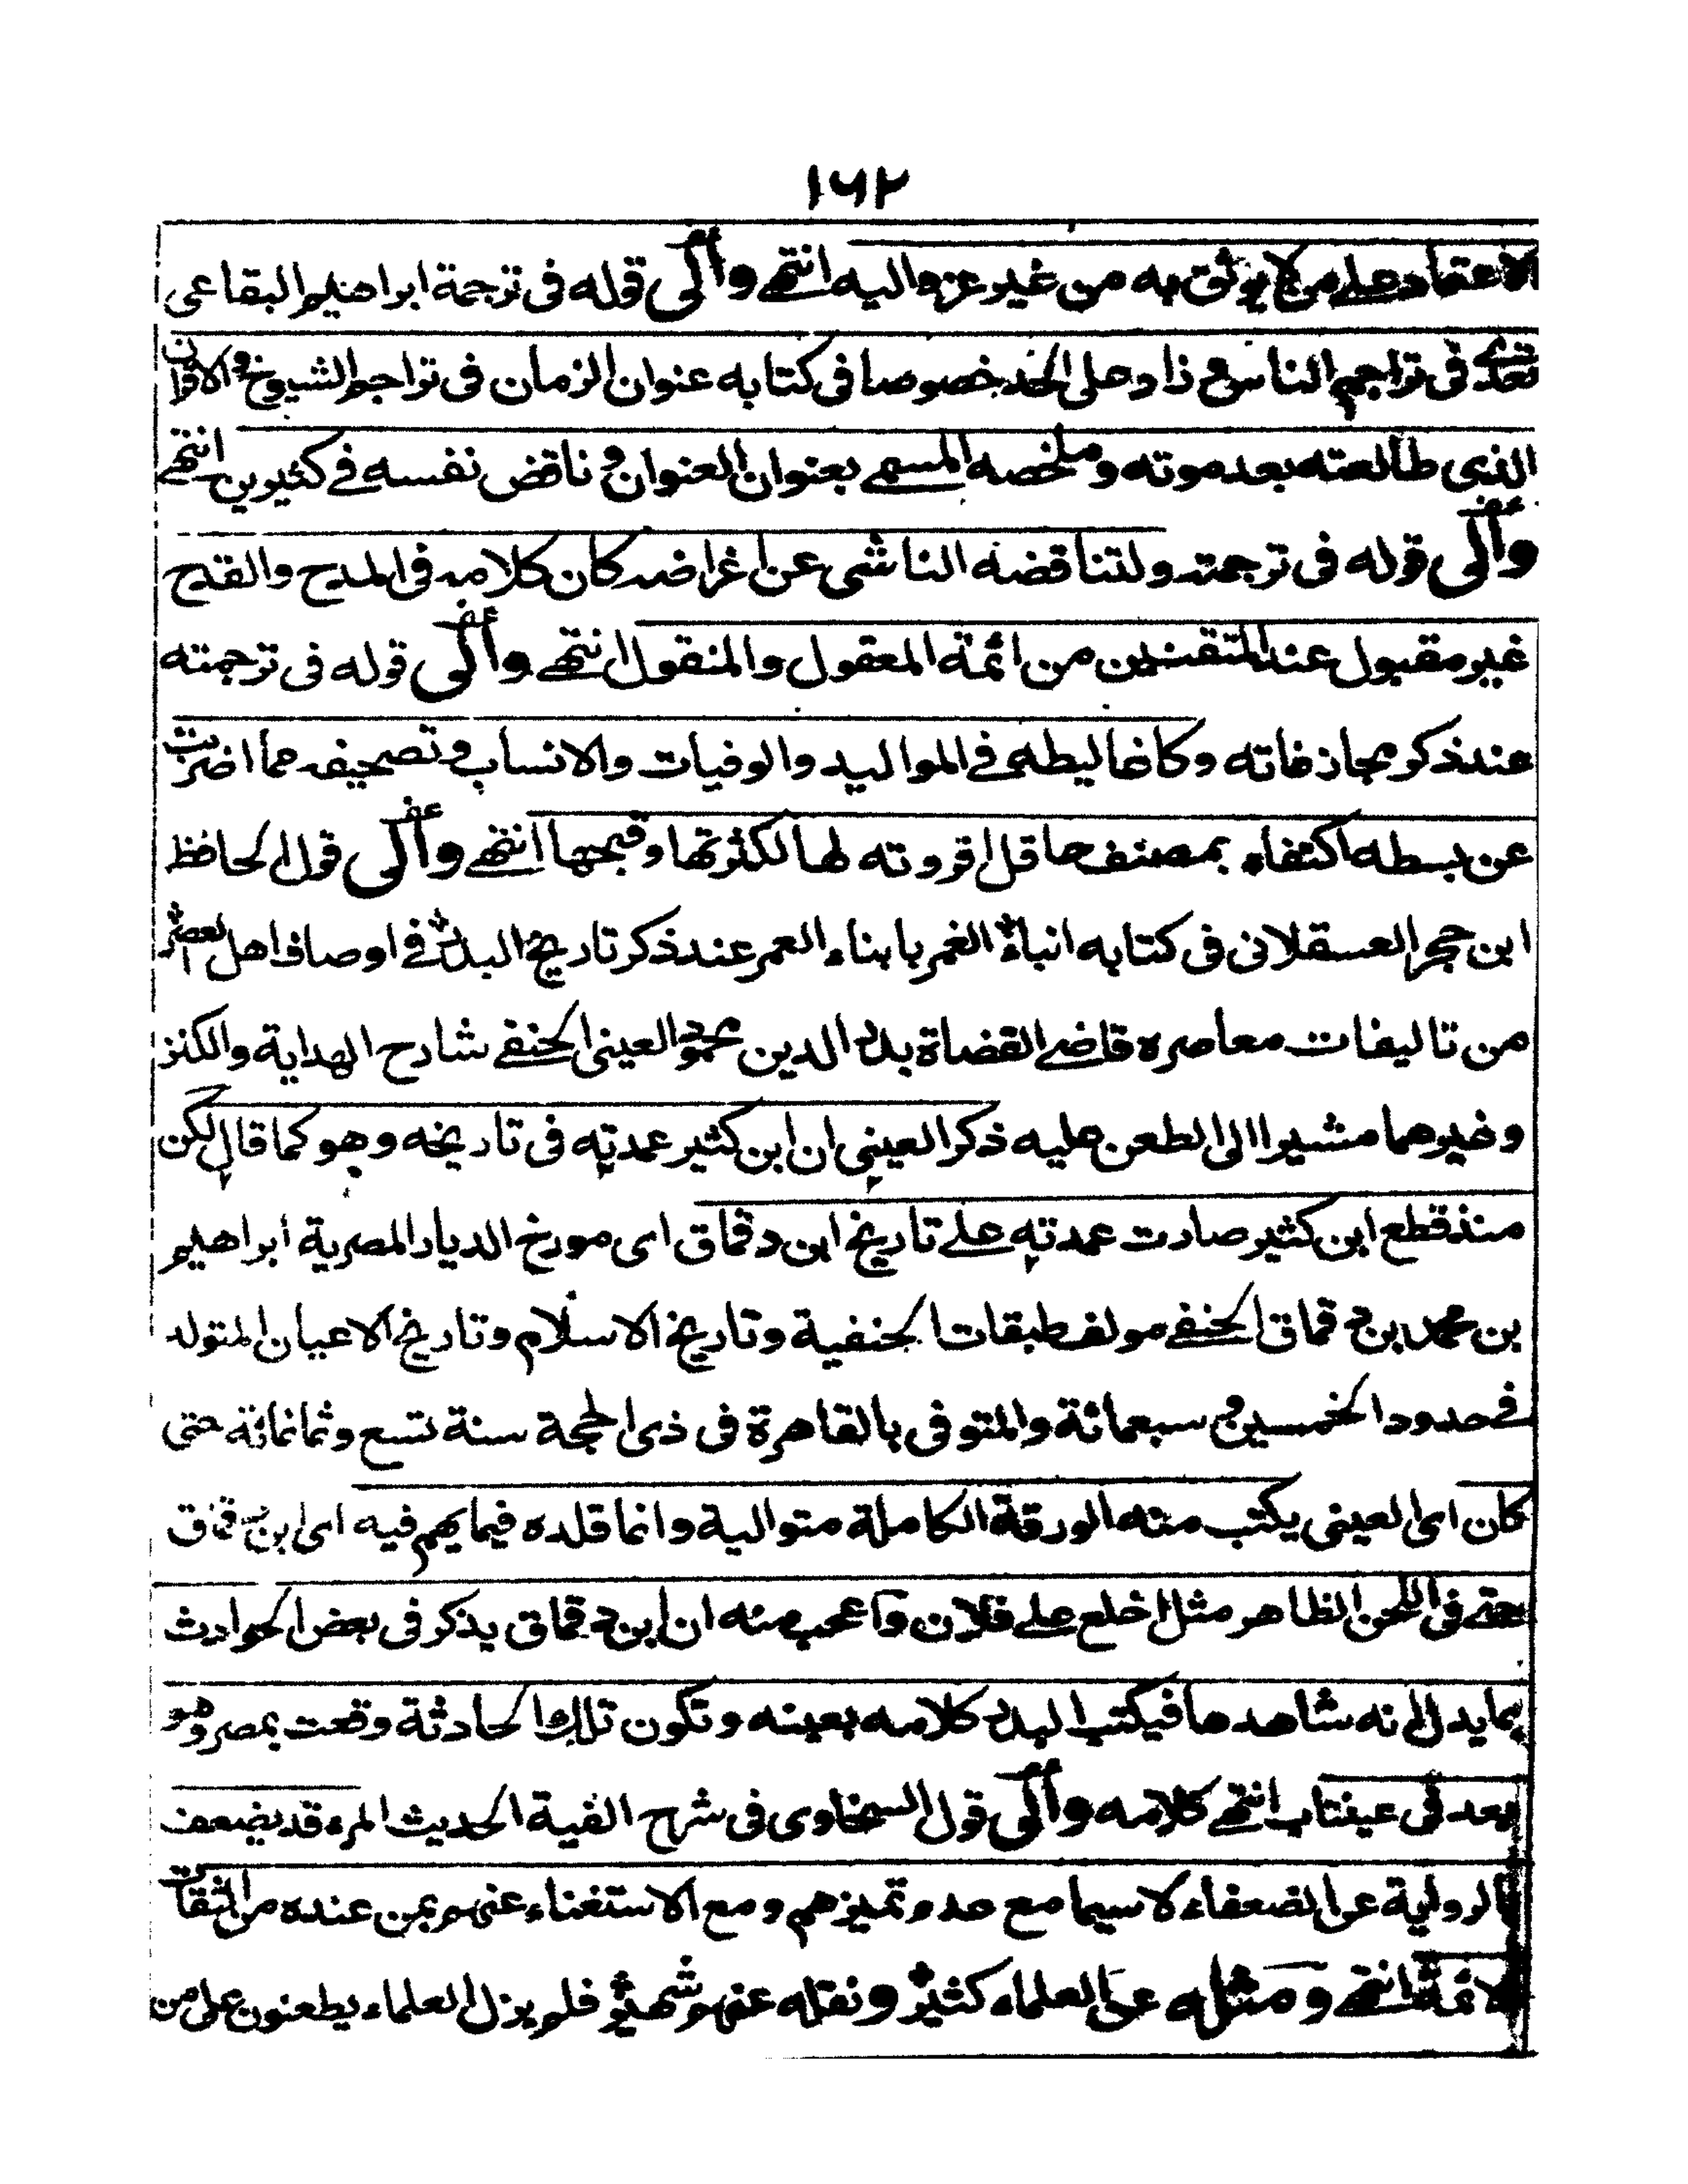 ١٦٢
الاعتماد على من لا يوثق به من غير عزو اليه انتهى والى قوله فى ترجمة ابراهيم البقاعى
تعدى فى تراجم الناس وزاد على الحد خصوصا فى كتابه عنوان الزمان فى تراجم الشيوخ والاقران
الذى طالعته بعد موته وملخصه المسمى بعنوان العنوان وناقض نفسه فى كثيرين انتهى
والى قوله فى ترجمته ولتناقضه الناشى عن اغراضه كان كلامه فى المدح والقدح
غير مقبول عند المتقنين من ائمة المعقول والمنقول انتهى والى قوله فى ترجمته
عند ذكر مجازفاته وكاغاليطه فى المواليد والوفيات والانساب وتصحيفه مما اضربت
عن بسطه اكتفاء بمصنف حاقل افردته لها لكثرتها وقبحها انتهى والى قول الحافظ
ابن حجر العسقلانى فى كتابه انباء الغمر بابناء العمر عند ذكر تاريخ البدر فى اوصاف اهل العصر
من تاليفات معاصره قاضى القضاة بدر الدين محمود العينى الحنفى شارح الهداية والكنز
وغيرهما مشيرا الى الطعن عليه ذكر العينى ان ابن كثير عمدته فى تاريخه وهو كما قال لكن
منذ قطع ابن كثير صارت عمدته على تاريخ ابن دقماق اى مورخ الديار المصرية ابراهيم
بن محمد بن دقماق الحنفى مولف طبقات الحنفية وتاريخ الاسلام وتاريخ الاعيان المتولد
فى حدود الخمسين وسبعمائة والمتوفى بالقاهرة فى ذى الحجة سنة تسع وثمانمائة حتى
كان اى العينى يكتب منه الورقة الكاملة متوالية وانما قلده فيما يهم فيه اى ابن دقماق
حتى فى اللحن الظاهر مثل اخلع على فلان واعجب منه ان ابن دقماق يذكر فى بعض الحوادث
بما يدل انه شاهدها فيكتب البدر كلامه بعينه وتكون تلك الحادثة وقعت بمصر وهو
بعد فى عينتاب انتهى كلامه والى قول السخاوى فى شرح الفية الحديث المرء قد يضعف
بالرواية عن الضعفاء لا سيما مع عدم تميزهم ومع الاستغناء عنهم بمن عنده من الثقات
الائمة انتهى ومثله عن العلماء كثير ونقله عنهم شهير فلم يزل العلماء يطعنون على من